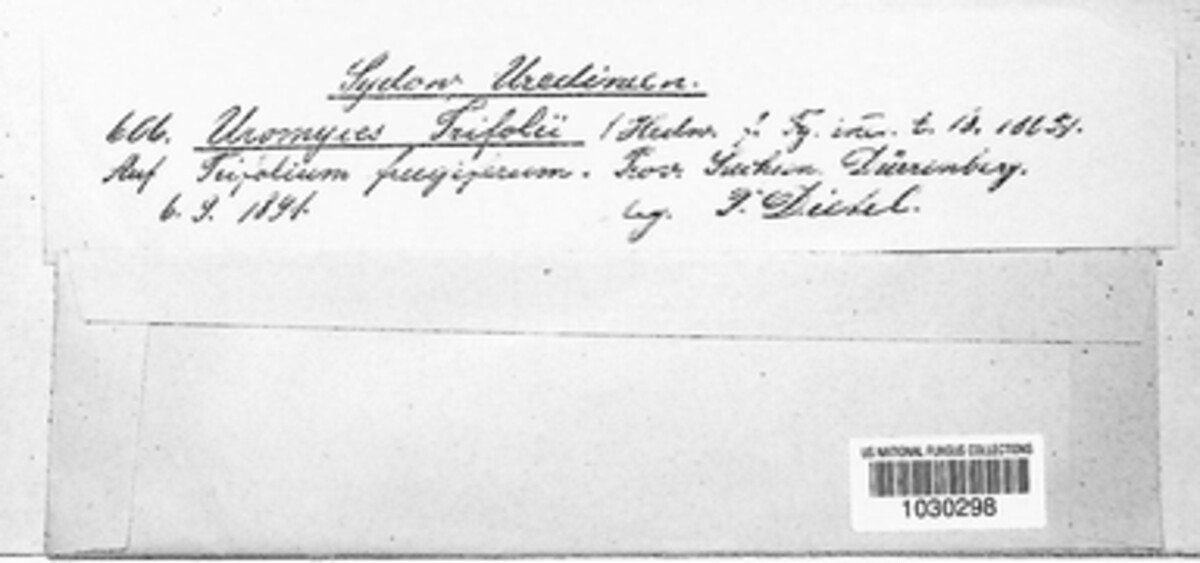 Sydow Uredineen.
606. Uromyces Trifolii (Hedw. f. t. 18.
Auf Trifolium fragiferum. Prov. Sachsen. Dürrenberg.
6. 9. 1891. leg. P. Dietel.
US NATIONAL FUNGUS COLLECTIONS
1030298